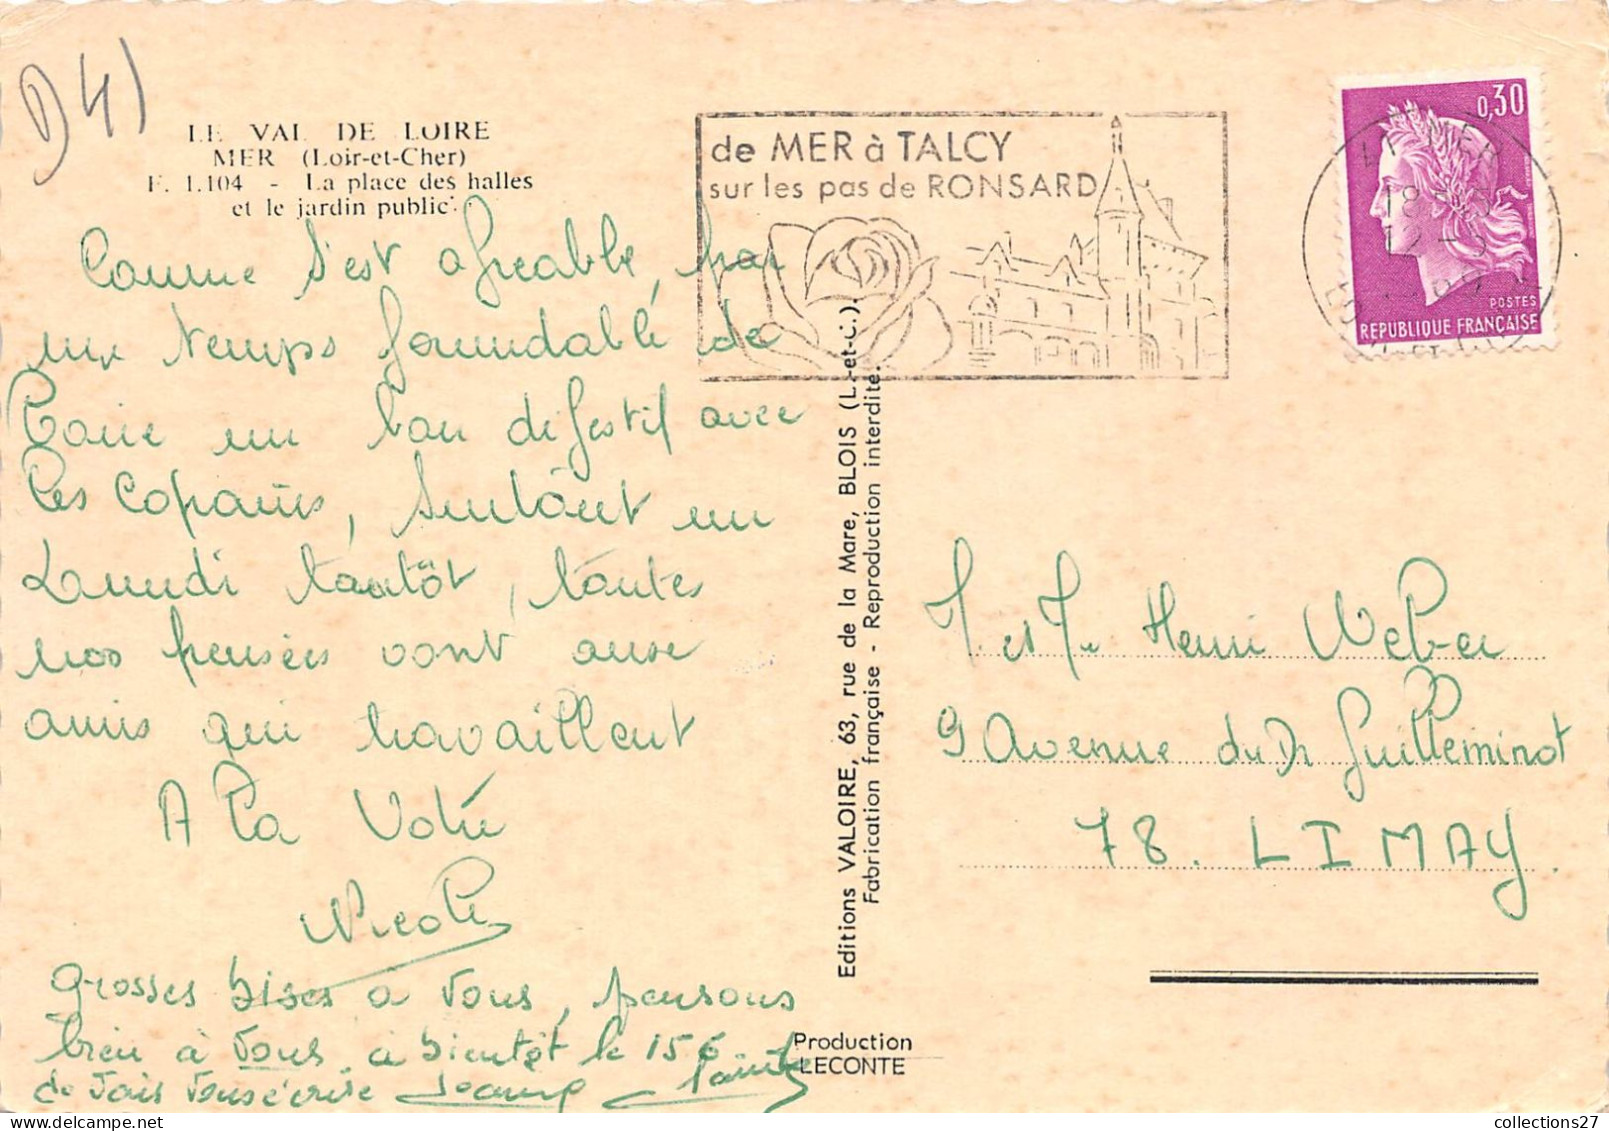 D41
LE VAL DE LOIRE
MER (Loir-et-Cher)
F. 1.104 - La place des halles
et le jardin public
Comme s'est agreable, par
un temps formidable de
faire un bon digestif avec
les copains, surtout un
Lundi tantôt, toutes
nos pensées vont aux
amis qui travaillent
A la Votre
Nicole
grosses bises a vous, pensons
bien à vous à bientôt le 15 6
Je vais vous écrire
de MER à TALCY
sur les pas de RONSARD
0,30
POSTES
REPUBLIQUE FRANÇAISE
41 MER
18 H
12 - 5
Editions VALOIRE, 63, rue de la Mare, BLOIS (L.-et-C.).
Fabrication française - Reproduction interdite.
M et Me Henri Weber
9 Avenue du Dr Guilleminot
78. LIMAY.
Production
LECONTE
collections27